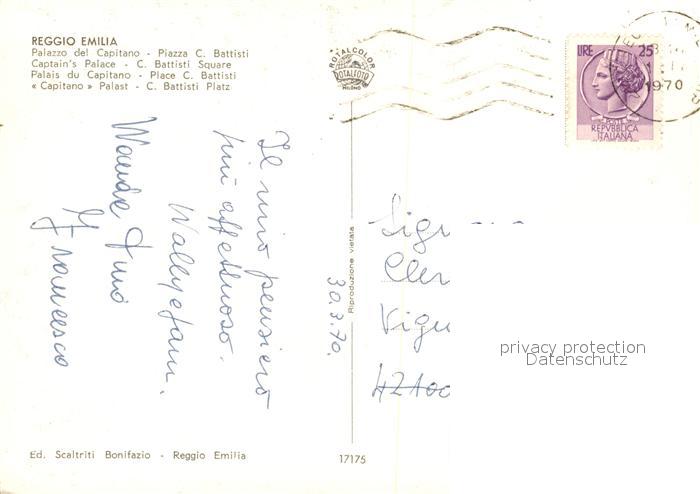 REGGIO EMILIA
Palazzo del Capitano - Piazza C. Battisti
Captain's Palace - C. Battisti Square
Palais du Capitano - Place C. Battisti
« Capitano » Palast - C. Battisti Platz
ROTALCOLOR
ROTALFOTO
MILANO
LIRE 25
POSTE
REPVBBLICA
ITALIANA
1970
Il mio pensiero
più affettuoso.
Wally e fam.
Wanda
Francesco
Riproduzione vietata
30.3.70.
Sig
Cler
42100
privacy protection
Datenschutz
Ed. Scaltriti Bonifazio - Reggio Emilia
17175